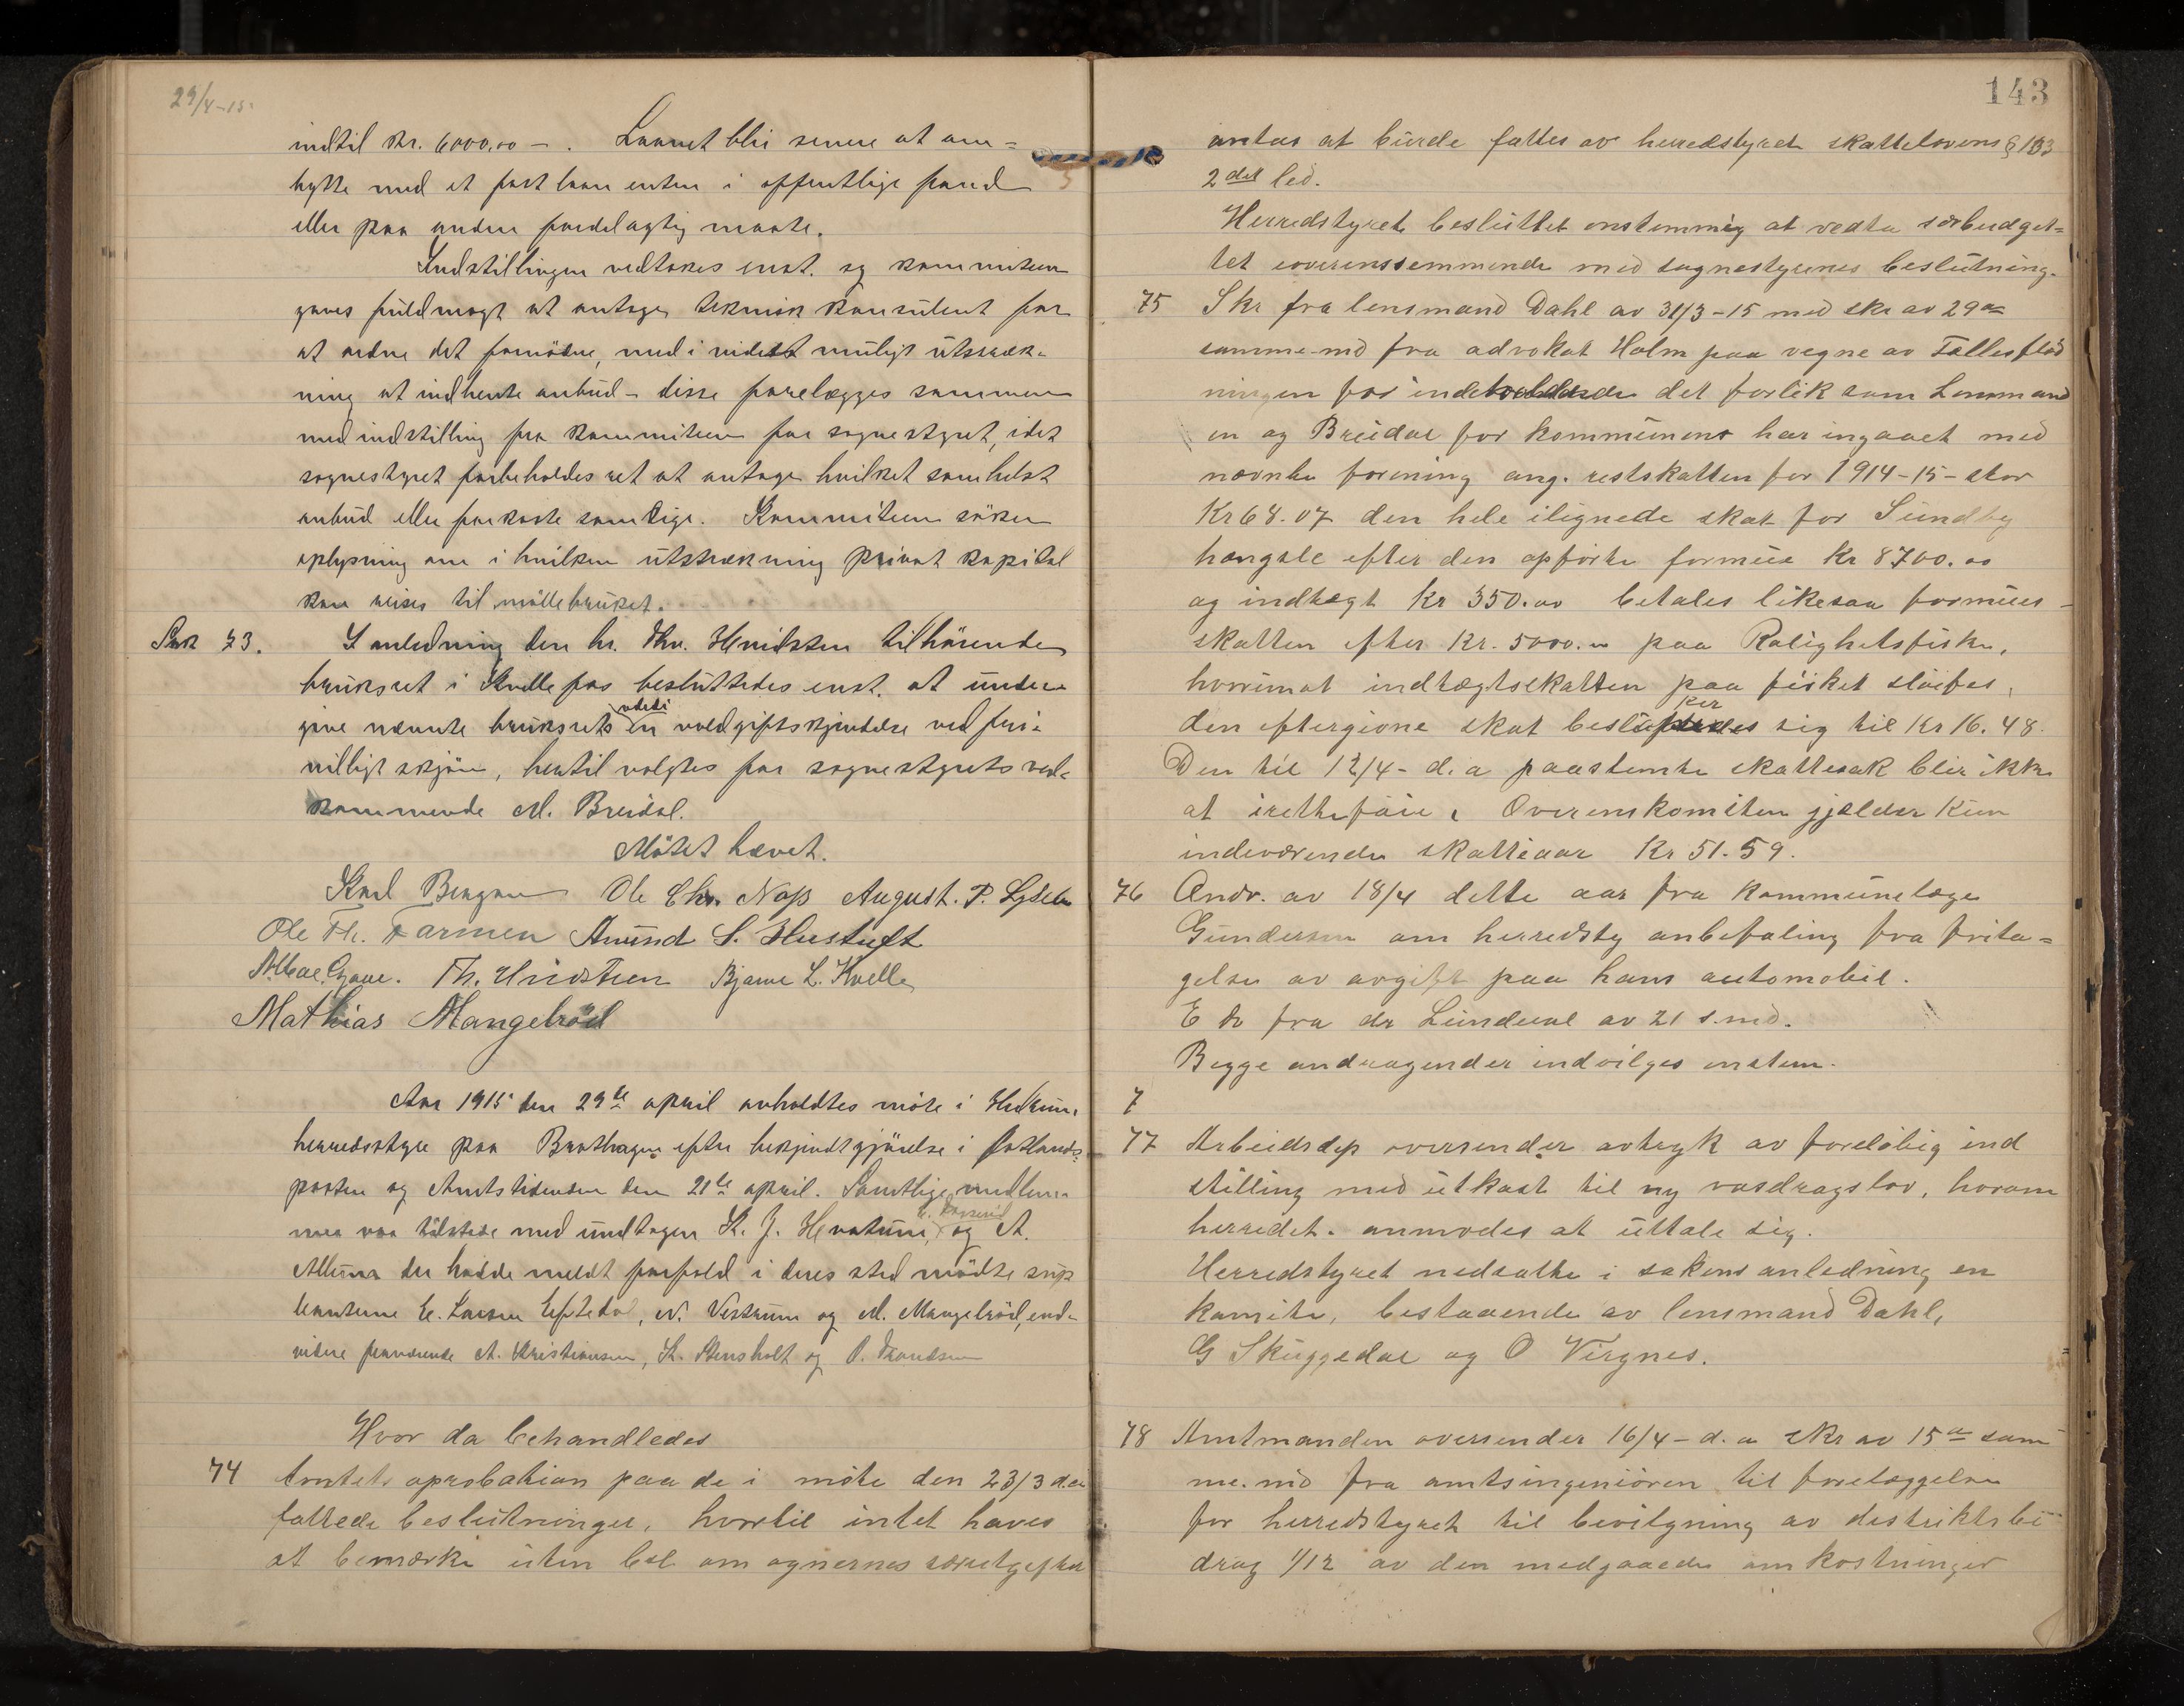 29/4-15.
indtil kr. 6000,00 — . Laanet blir senere at om-
bytte med et fast laan enten i offentlige fond
eller paa anden fordelagtig maate.
Indstillingen vedtokes enst. og kommiteen
gaves fuldmagt at antage teknisk konsulent for
at ordne det fornødne, med i videst muligt utstræk-
ning at indhente anbud – disse forelægges sammen
med indstilling fra kommiteen for sognestyret, idet
sognestyret forbeholdes ret at antage hvilket somhelst
anbud eller forkaste samtlige. Kommiteen søker
oplysning om i hvilken utstrækning privat kapital
kan reises til møllebruket.
Sak 73. I anledning den hr. Thv. Hvidsten tilhørende
bruksret i Kvelle fos besluttedes enst. at under-
give nævnte bruksrets værdi en voldgiftskjendelse ved fri-
villigt skjøn, hertil valgtes for sognestyrets ved-
kommende M. Breidal.
Møtet hævet.
Karl Bergan Ole Chr. Næss August. P.
Ole Th. Farmen Anund S. Hustuft
Th. Hvidsten Bjarne L. Kvelle
Mathias Mangelrød
Aar 1915 den 29de april avholdtes møte i Hedrum
herredsstyre paa Brathagen efter bekjendtgjørelse i Østlands-
posten og Amtstidenden den 21de april. Samtlige medlem-
mer var tilstede med undtagen K. J. Hvatum, og A.
Allum der hadde meldt forfald i deres sted mødte sup
leanterne E. Larsen Eftedal, N. Vestrum og M. Mangelrød, end-
videre fraværende A. Kristiansen, K. Stensholt og O.
Hvor da behandledes
74 Amtets aprobation paa de i møte den 23/3 d.a
fattede beslutninger, hvortil intet haves
at bemærke uten besl om sognernes særutgifter
143
antas at burde fattes av herredstyret skattelovens § 133
2det led.
Herredstyret besluttet enstemmig at vedta særbudget-
tet overensstemmende med sognestyrenes beslutning.
75 Skr fra lensmand Dahl av 31/3-15 med skr av 29de
samme md fra advokat Holm paa vegne av Fællesfløt
ningen for indeholdende det forlik som Lensmand
en og Breidal for kommunens har ingaaet med
nævnte forening ang. restskatten for 1914-15 - stor
Kr 68.07 den hele ilignede skat for Sundby
hængsle efter den opførte formue Kr 8700.00
og indtægt Kr 350.00 betales likesaa formues-
skatten efter Kr. 5000.00 paa Rolighetsfisket,
hvorimot indtægtsskatten paa fisket sløifes,
den eftergivne skat beløper sig til Kr 16.48.
Den til 12/4 - d. a paastemte skattesak blir ikke
at iretteføie. Overenskomsten gjælder kun
indeværende skatteaar Kr 51.59.
76 Andr. av 18/4 dette aar fra kommunelæge
Gundersen om herredsty anbefaling fra frita-
gelse av avgift paa hans automobil.
E do fra dr Lundeval av 21 s.md.
Begge andragender indvilges enstem.
7
77 Arbeidsdep oversender avtryk av foreløbig ind
stilling med utkast til ny vasdragslov, hvorom
herredet. anmodes at uttale sig.
Herredstyret nedsatte i sakens anledning en
komite, bestaaende av lensmand Dahl,
G Skuggedal og O Virgnes.
78 Amtmanden oversender 16/4 - d. a skr av 15de sam
me. md fra amtsingeniøren til forelæggelse
for herredstyret til bevilgning av distriktsbi
drag 1/12 av den medgaaede omkostninger